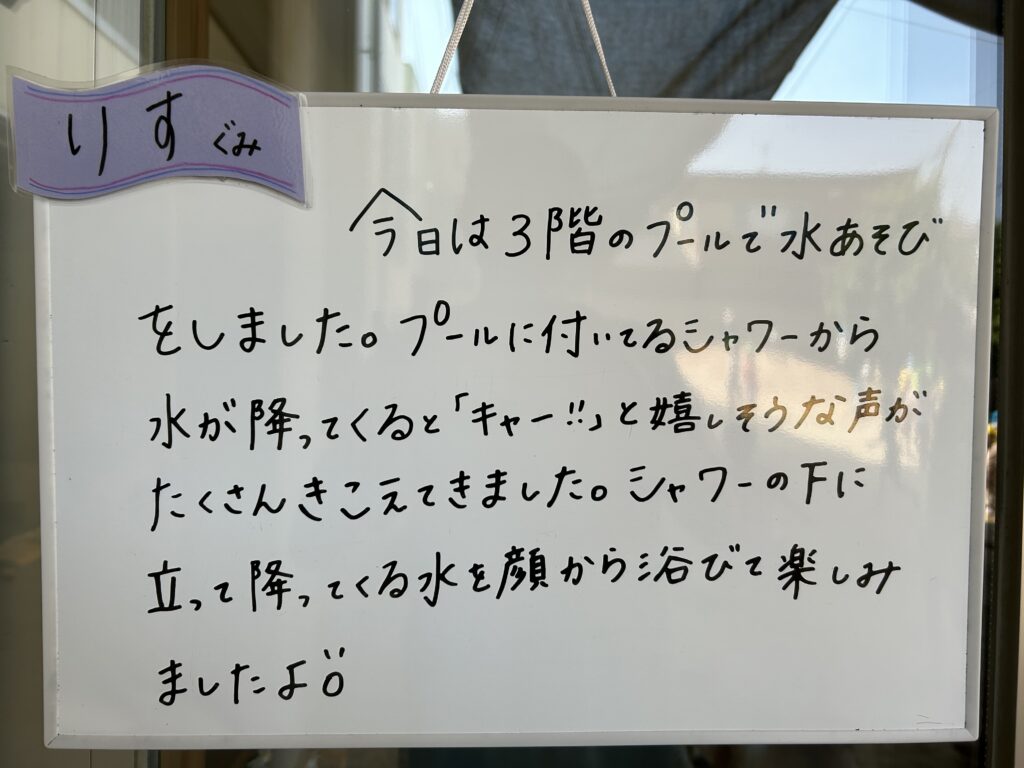 りす ぐみ
今日は3階のプールで水あそび
をしました。プールに付いてるシャワーから
水が降ってくると「キャー!!」と嬉しそうな声が
たくさんきこえてきました。シャワーの下に
立って降ってくる水を顔から浴びて楽しみ
ましたよ